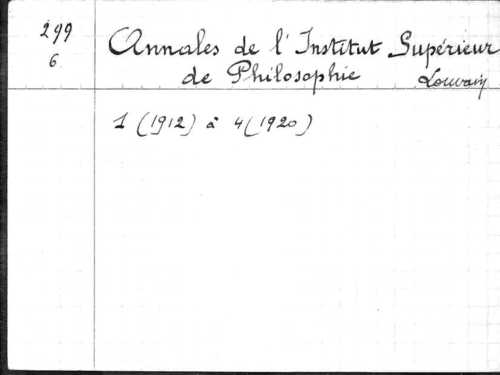 299 Annales de l'Institut Supérieur
6. de Philosophie Louvain
1 (1912) à 4 (1920)